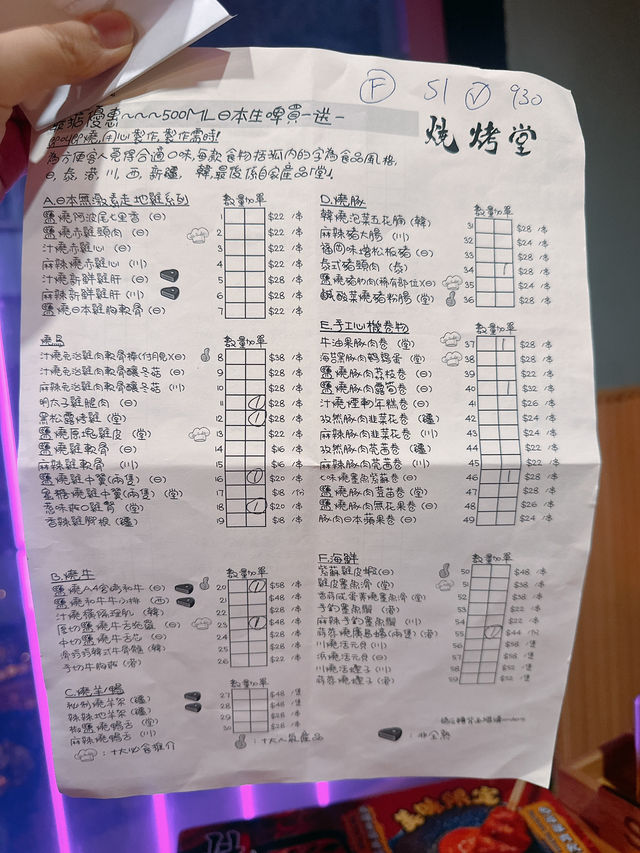 Ⓕ 51 ✓ 930
優惠~~~500ML日本生啤買一送一
燒烤堂
即叫即燒,用心製作,製作需時!
為方便客人覓得合適口味,每款食物括弧內的字為食品風格,
日,泰,港,川,西,新疆,韓,最後係自家產品「堂」!
A.日本無激素走地雞系列 數量 加單
鹽燒阿波尾七里香 (日) 1 $22 /串
鹽燒赤雞頸肉 (日) 2 $22 /串
汁燒赤雞心 (日) 3 $22 /串
麻辣燒赤雞心 (川) 4 $22 /串
汁燒新鮮雞肝 (日) 5 $28 /串
麻辣新鮮雞肝 (川) 6 $28 /串
鹽燒日本雞胸軟骨 (日) 7 $22 /串
燒鳥 數量 加單
汁燒免治雞肉軟骨棒(付月見)(日) 8 $38 /串
汁燒免治雞肉軟骨釀冬菇 (日) 9 $28 /串
麻辣免治雞肉軟骨釀冬菇 (川) 10 $28 /串
明太子雞腿肉 (日) 11 1 $28 /串
黑松露烤雞 (堂) 12 1 $28 /串
鹽燒原塊雞皮 (堂) 13 $28 /串
鹽燒雞軟骨 (日) 14 $16 /串
麻辣雞軟骨 (川) 15 $16 /串
鹽燒雞中翼(兩隻) (日) 16 1 $20 /串
蜜糖燒雞中翼(兩隻) (堂) 17 $18 /份
惹味雞腎 (堂) 18 1 $20 /串
香辣雞腳根 (疆) 19 $18 /串
B.燒牛 數量 加單
鹽燒A4宮崎和牛 (日) 20 1 $58 /串
鹽燒和牛牛小排 (西) 21 $48 /串
汁燒橫隔理肌 (韓) 22 $28 /串
厚切鹽燒牛舌 (日) 23 1 $48 /串
中切鹽燒牛舌芯 (日) 24 $28 /串
25 $28 /串
手切牛胸 (港) 26 $22 /串
C.燒羊/鴨 數量 加單
秘制燒羊架 (疆) 27 $48 /隻
辣辣地羊架 (疆) 28 $48 /隻
椒鹽燒鴨舌 (堂) 29 $28 /串
麻辣燒鴨舌 (川) 30 $28 /串
:十大必食推介
:十大人氣產品
:非全熟
D.燒豚 數量 加單
韓燒泡菜五花腩 (韓) 31 $28 /串
麻辣豬大腸 (川) 32 $24 /串
福岡味噌松板豬 (日) 33 $28 /串
泰式豬頸肉 (泰) 34 1 $28 /串
鹽燒豬肋肉(稀有部位)(日) 35 $24 /串
鹹酸菜燒豬粉腸 (堂) 36 $28 /串
E.手工心機卷物 數量 加單
牛油果豚肉卷 (日) 37 1 $28 /串
海苔黑豚肉鵪鶉蛋 (堂) 38 $28 /串
鹽燒豚肉荔枝卷 (日) 39 $22 /串
鹽燒豚肉露筍卷 (日) 40 1 $32 /串
汁燒煙鴨年糕卷 (日) 41 $26 /串
孜然豚肉韭菜花卷 (疆) 42 $24 /串
麻辣豚肉韭菜花卷 (川) 43 $24 /串
孜然豚肉芫茜卷 (疆) 44 $22 /串
麻辣豚肉芫茜卷 (川) 45 $22 /串
七味燒墨魚紫蘇卷 (日) 46 1 $28 /串
鹽燒豚肉苗卷 (堂) 47 $28 /串
鹽燒豚肉無花果卷 (日) 48 $26 /串
豚肉日本蘋果卷 (日) 49 $24 /串
F.海鮮 數量 加單
紫蘇雞皮蝦(日) 50 $48 /串
雞皮墨魚滑 (堂) 51 $38 /串
香蒜鹹蛋黃燒墨魚滑 (堂) 52 $38 /串
手釣墨魚鬚 (港) 53 $22 /串
麻辣手釣墨魚鬚 (川) 54 $22 /串
蒜蓉燒廣島蠔(兩隻)(港) 55 1 $44 /份
川燒活元貝(川) 56 $58 /隻
派燒活元貝 (日) 57 $58 /隻
川燒活蟶子 (川) 58 $52 /隻
蒜蓉燒蟶子 (港) 59 $52 /隻